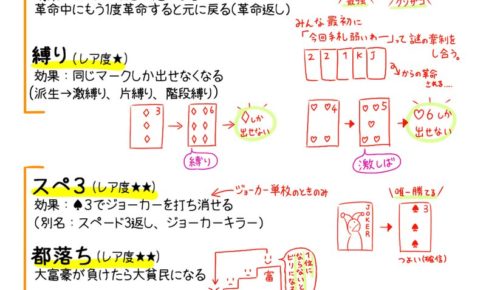 革命中にもう1度革命すると元に戻る(革命返し)
みんな最初に
「今回手札弱いわー」って謎の牽制を
し合う。
2 2 1 K J
からの革命
される....
縛り(レア度★)
効果：同じマークしか出せなくなる
(派生→激縛り、片縛り、階段縛り)
3 6
♢しか
出せない
縛り
4 5
♡6しか
出せない
激しば
スペ3(レア度★★)
効果：♠3でジョーカーを打ち消せる
(別名：スペード3返し、ジョーカーキラー)
ジョーカー単枚のときのみ
JOKER
唯一勝てる
3
つよい(確信)
都落ち(レア度★★)
大富豪が負けたら大貧民になる
富
1位に
ならないと
ビリになる